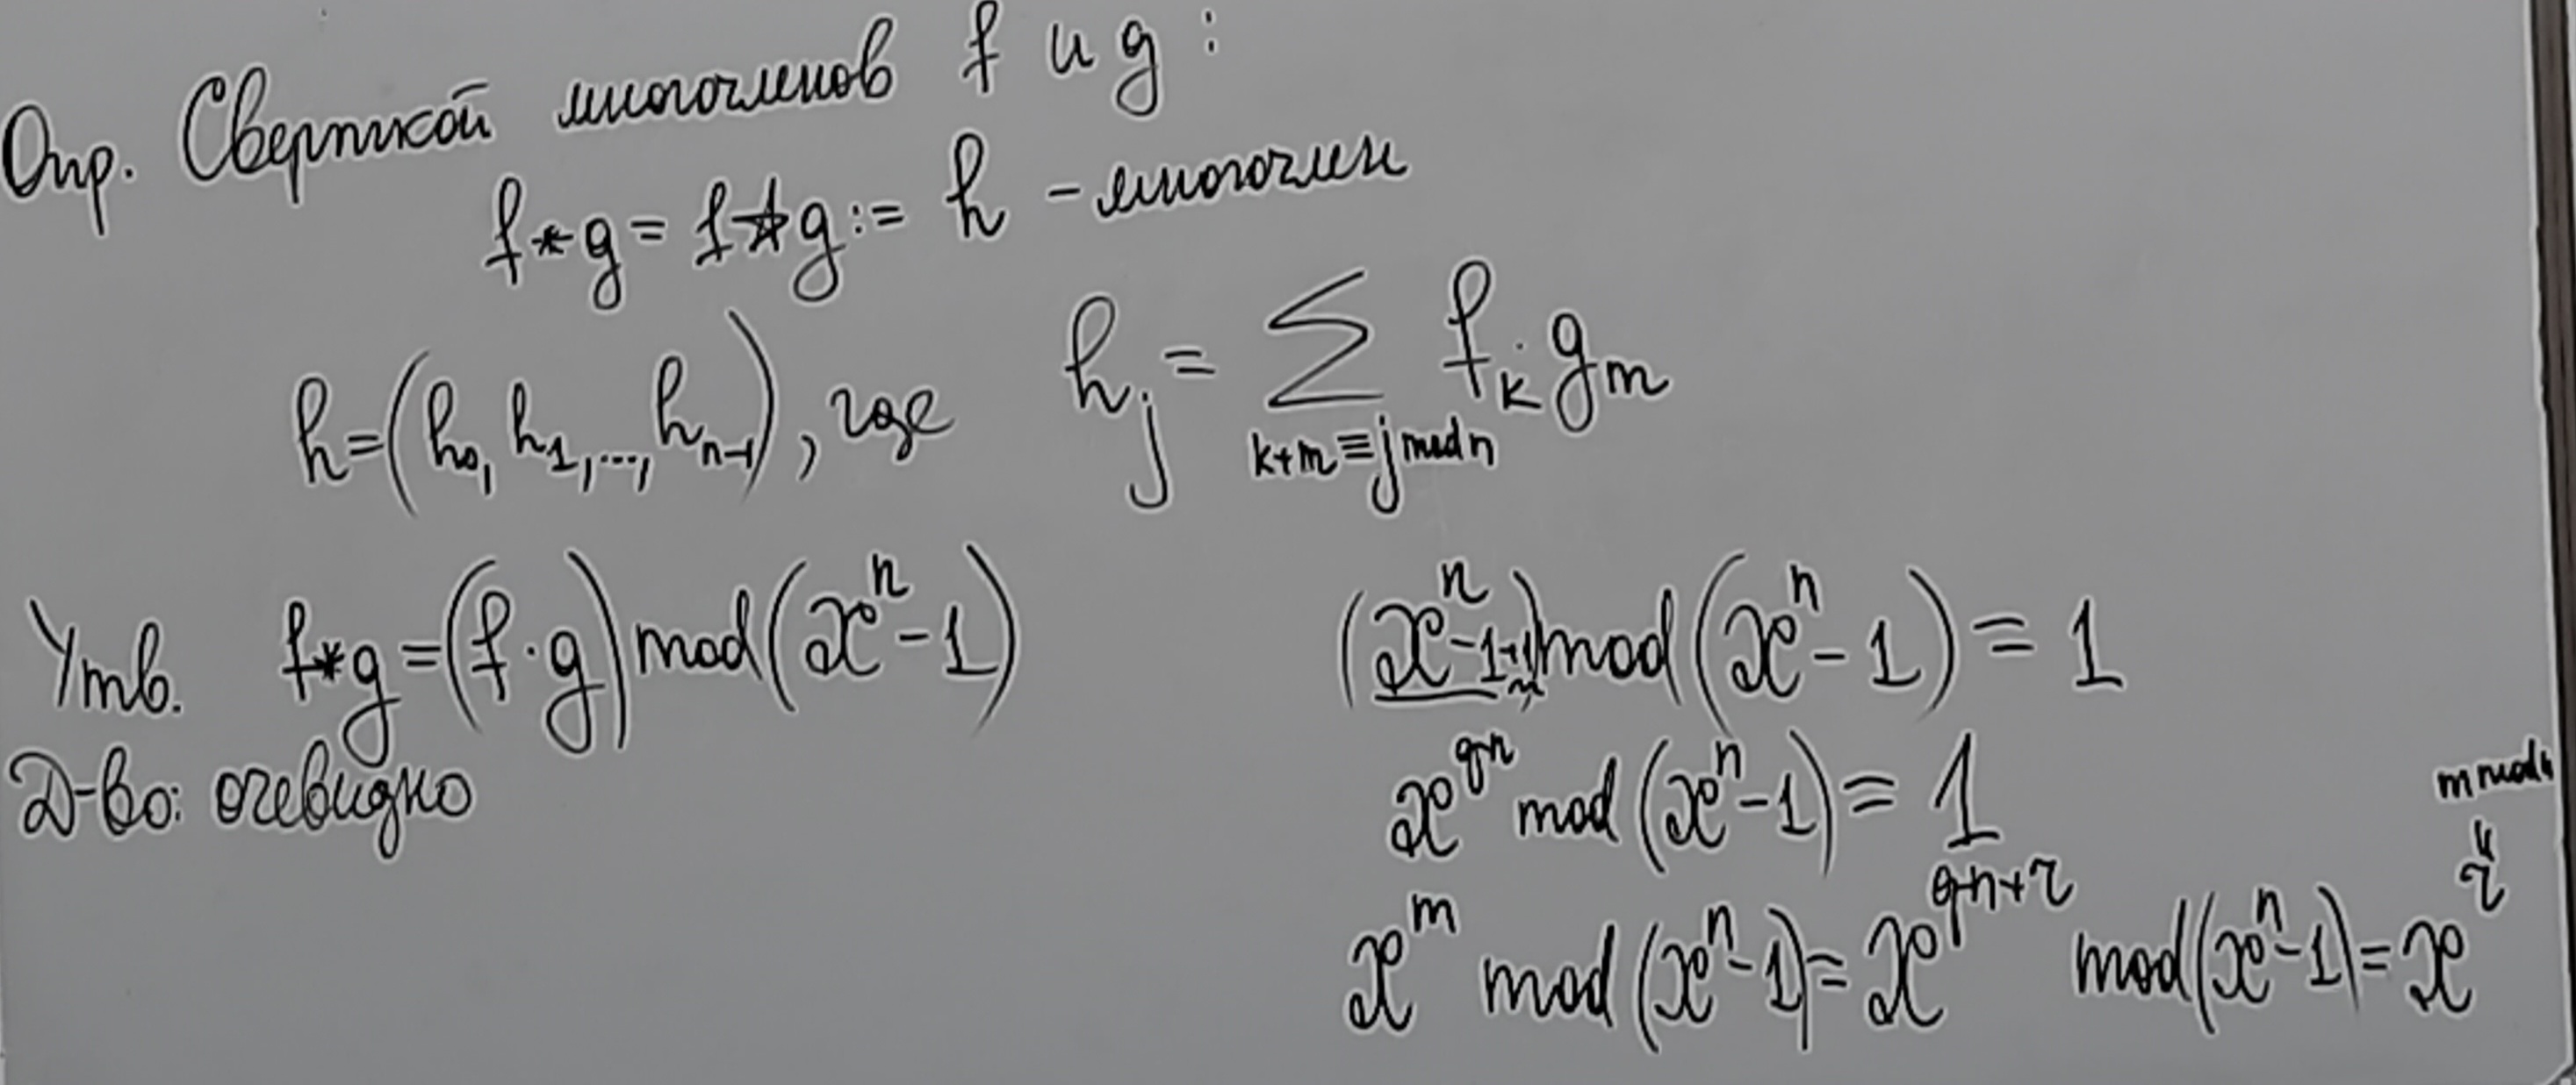 Опр. Сверткой многочленов f и g :
f * g = f ☆ g := h - многочлен
h = (h₀, h₁, ..., hₙ₋₁), где h_j = ∑_{k+m ≡ j mod n} f_k · g_m
Утв. f * g = (f · g) mod (xⁿ - 1)
Д-во: очевидно
(xⁿ - 1 + 1) mod (xⁿ - 1) = 1
x^{q·n} mod (xⁿ - 1) = 1
m mod n
x^m mod (xⁿ - 1) = x^{q·n + r} mod (xⁿ - 1) = x^r